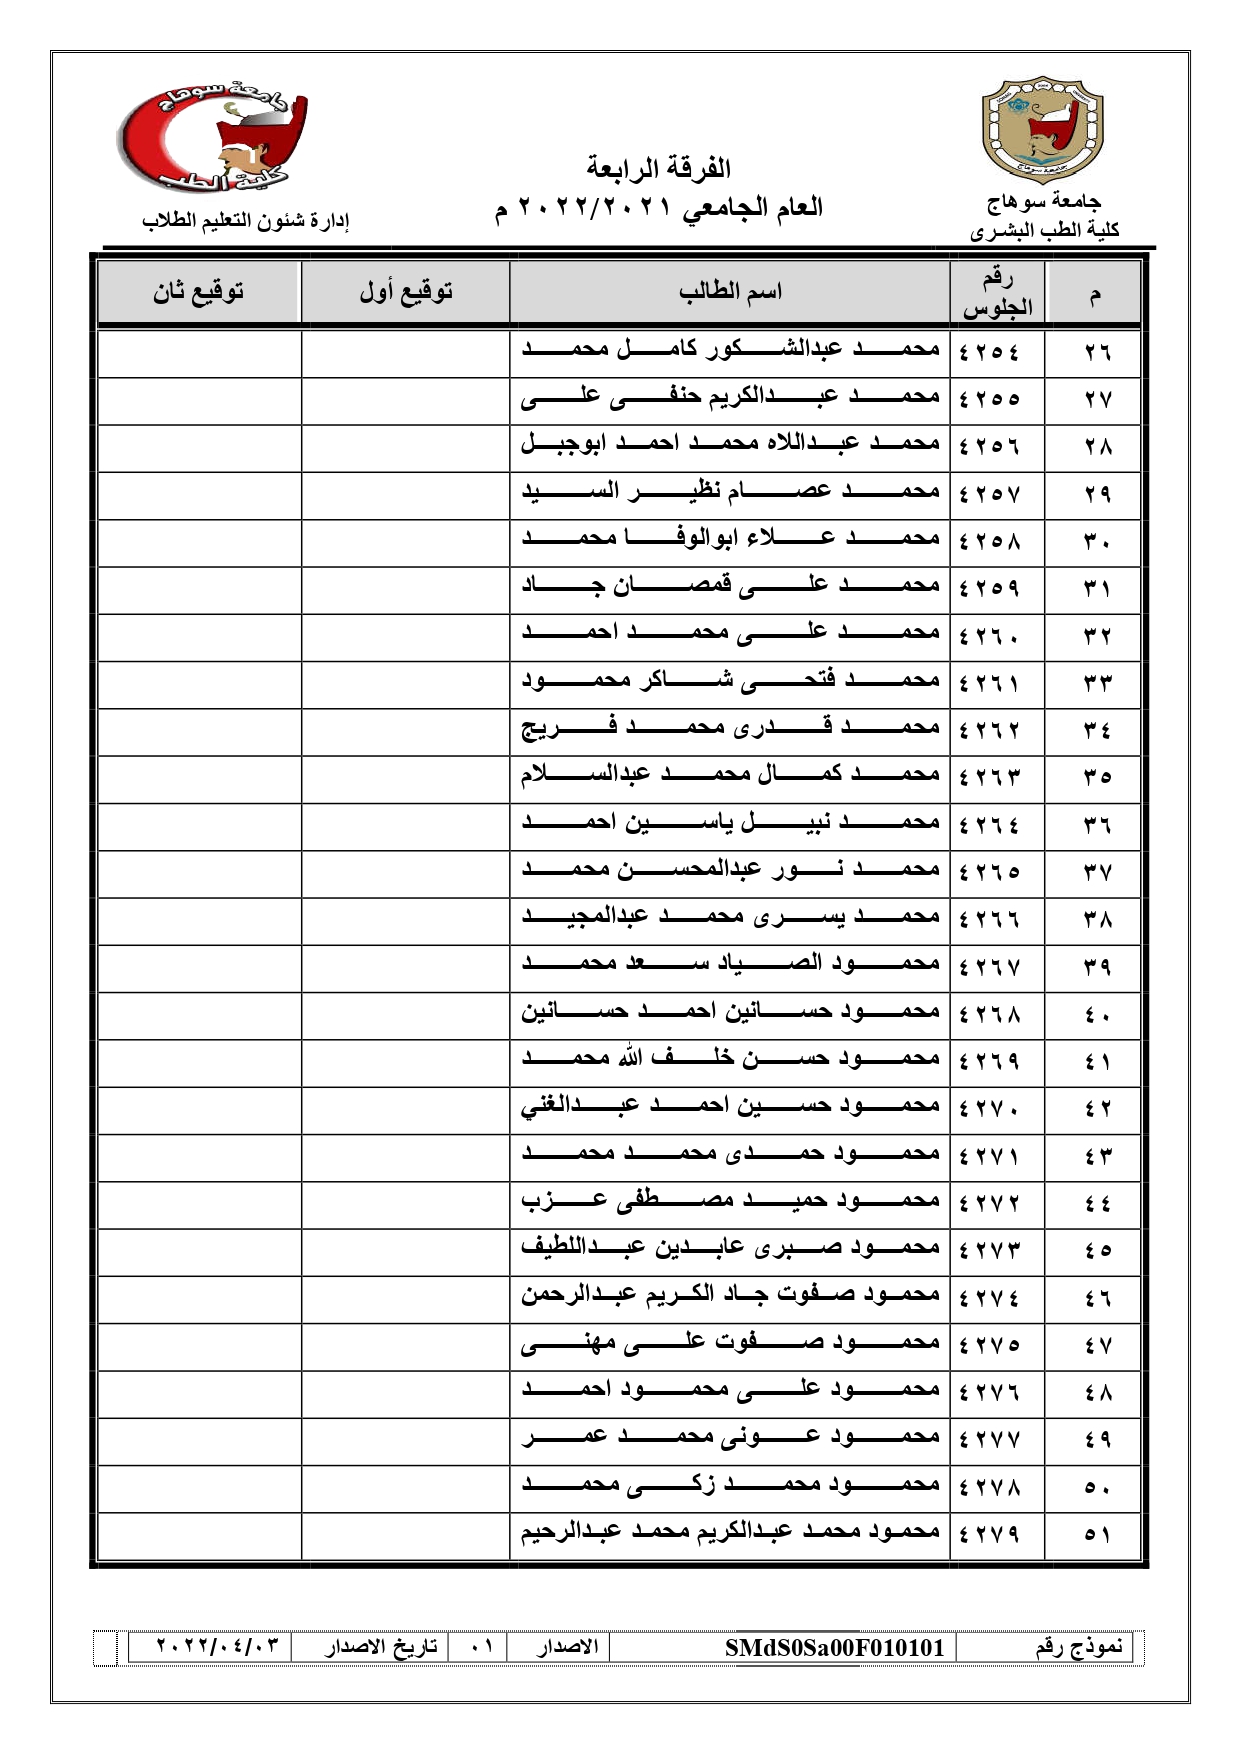 جامعة سوهاج
كلية الطب
جامعة سوهاج
الفرقة الرابعة
جامعة سوهاج
العام الجامعي ٢٠٢٢/٢٠٢١ م
إدارة شئون التعليم الطلاب
كلية الطب البشرى
م رقم الجلوس اسم الطالب توقيع أول توقيع ثان
٢٦ ٤٢٥٤ محمد عبدالشكور كامل محمد
٢٧ ٤٢٥٥ محمد عبدالكريم حنفى على
٢٨ ٤٢٥٦ محمد عبداللاه محمد احمد ابوجبل
٢٩ ٤٢٥٧ محمد عصام نظير السيد
٣٠ ٤٢٥٨ محمد علاء ابوالوفا محمد
٣١ ٤٢٥٩ محمد على قمصان جاد
٣٢ ٤٢٦٠ محمد على محمد احمد
٣٣ ٤٢٦١ محمد فتحى شاكر محمود
٣٤ ٤٢٦٢ محمد قدرى محمد فريج
٣٥ ٤٢٦٣ محمد كمال محمد عبدالسلام
٣٦ ٤٢٦٤ محمد نبيل ياسين احمد
٣٧ ٤٢٦٥ محمد نور عبدالمحسن محمد
٣٨ ٤٢٦٦ محمد يسرى محمد عبدالمجيد
٣٩ ٤٢٦٧ محمود الصياد سعد محمد
٤٠ ٤٢٦٨ محمود حسانين احمد حسانين
٤١ ٤٢٦٩ محمود حسن خلف الله محمد
٤٢ ٤٢٧٠ محمود حسين احمد عبدالغني
٤٣ ٤٢٧١ محمود حمدى محمد محمد
٤٤ ٤٢٧٢ محمود حميد مصطفى عزب
٤٥ ٤٢٧٣ محمود صبرى عابدين عبداللطيف
٤٦ ٤٢٧٤ محمود صفوت جاد الكريم عبدالرحمن
٤٧ ٤٢٧٥ محمود صفوت على مهنى
٤٨ ٤٢٧٦ محمود على محمود احمد
٤٩ ٤٢٧٧ محمود عونى محمد عمر
٥٠ ٤٢٧٨ محمود محمد زكى محمد
٥١ ٤٢٧٩ محمود محمد عبدالكريم محمد عبدالرحيم
نموذج رقم SMdS0Sa00F010101 الاصدار ٠١ تاريخ الاصدار ٢٠٢٢/٠٤/٠٣